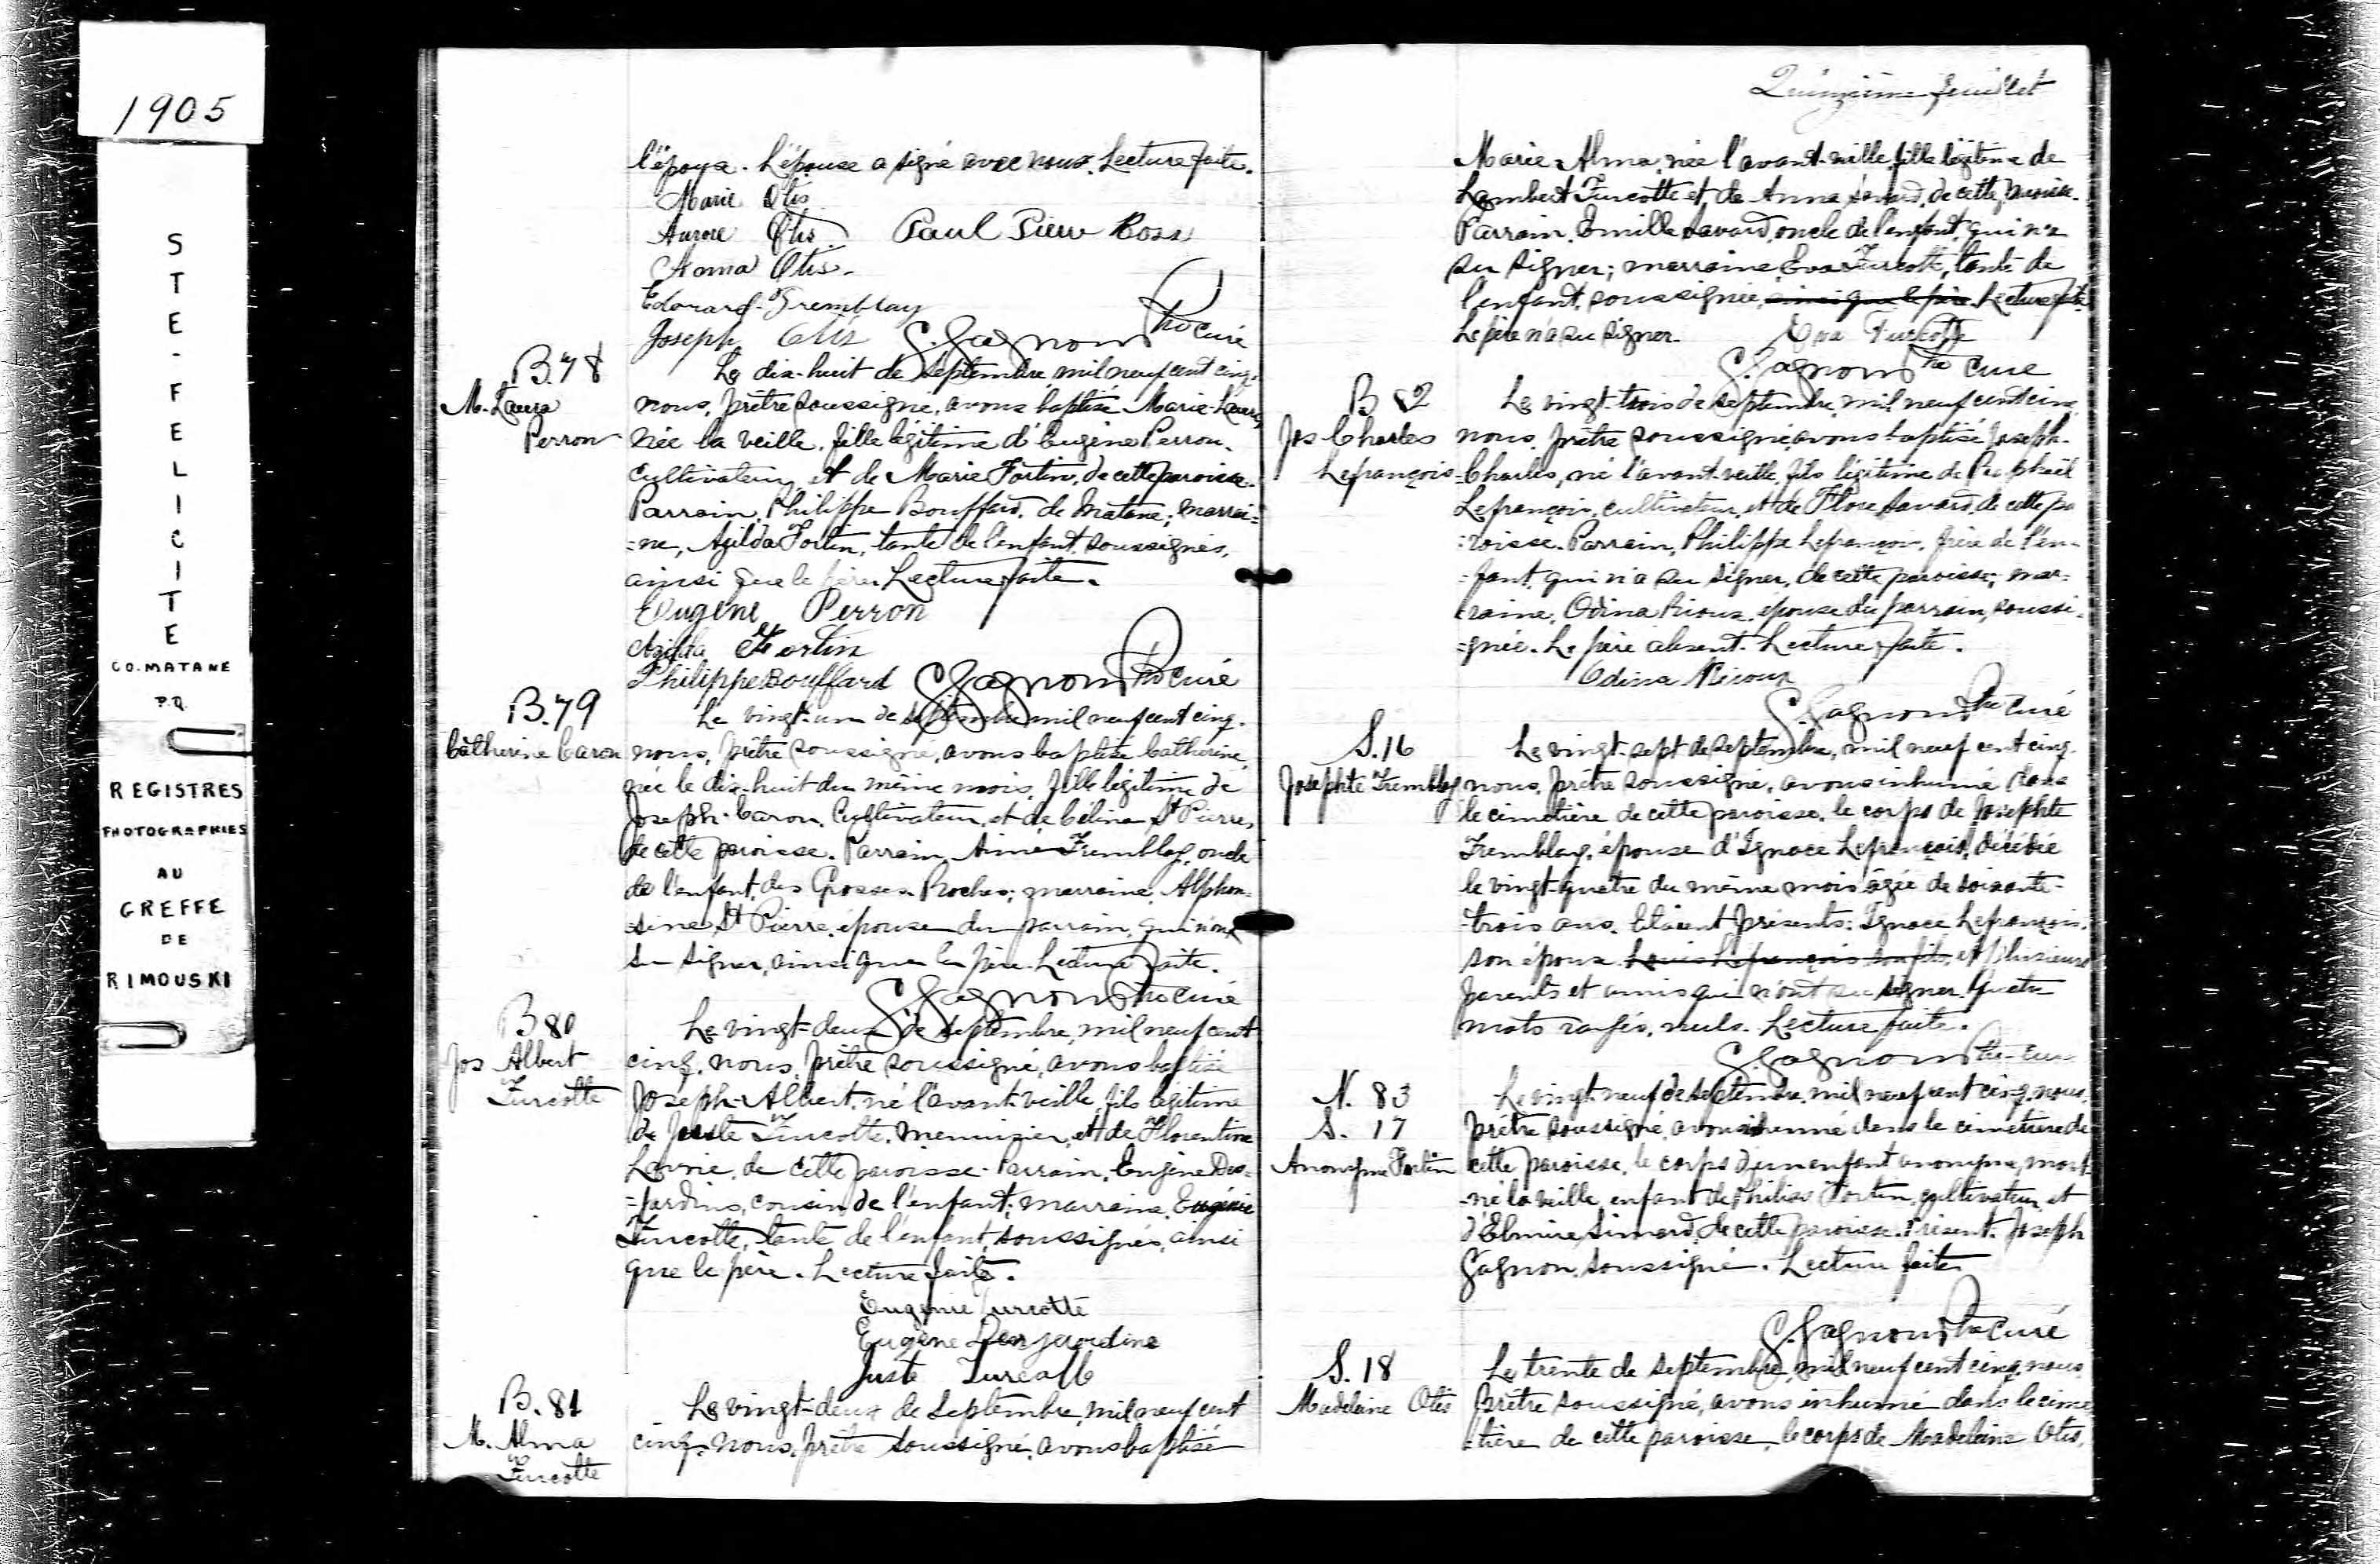 1905
STE-FELICITE
CO. MATANE
P.Q.
REGISTRES
PHOTOGRAPHIES
AU
GREFFE
DE
RIMOUSKI
l'époux. L'épouse a signé avec nous. Lecture faite.
Marie Otis
Aurore Otis Paul Pierre Ross
Noma Otis.
Edouard Tremblay
Joseph Otis G. Gagnon Ptre curé
B. 78
M. Laura
Perron
Le dix-huit de septembre mil neuf cent cinq,
nous, prêtre soussigné, avons baptisé Marie-Laura,
née la veille, fille légitime d'Eugène Perron,
cultivateur et de Marie Fortin, de cette paroisse.
Parrain, Philippe Bouffard, de Matane; marrai=
=ne, Azilda Fortin, tante de l'enfant, soussignés,
ainsi que le père. Lecture faite.
Eugène Perron
Azilda Fortin
Philippe Bouffard G. Gagnon Ptre curé
B. 79
Catherine Caron
Le vingt-un de septembre mil neuf cent cinq,
nous, prêtre soussigné, avons baptisé Catherine,
née le dix-huit du même mois, fille légitime de
Joseph Caron, cultivateur, et de Célina St Pierre,
de cette paroisse. Parrain, Aimé Tremblay, oncle
de l'enfant, des Grosses Roches; marraine, Alphon=
=sine St Pierre, épouse du parrain, qui n'ont
su signer, ainsi que le père. Lecture faite.
G. Gagnon Ptre curé
B 80
Jos Albert
Turcotte
Le vingt-deux de septembre, mil neuf cent
cinq, nous, prêtre soussigné, avons baptisé
Joseph-Albert, né l'avant-veille, fils légitime
de Juste Turcotte, menuisier, et de Florentine
Lavoie, de cette paroisse. Parrain, Eugène Des=
=jardins, cousin de l'enfant; marraine, Eugénie
Turcotte, tante de l'enfant, soussignés, ainsi
que le père. Lecture faite.
Eugénie Turcotte
Eugène Desjardins
Juste Turcotte
B. 81
M. Alma
Turcotte
Le vingt-deux de septembre, mil neuf cent
cinq, nous, prêtre soussigné, avons baptisé
Quinzième feuillet
Marie-Alma, née l'avant-veille, fille légitime de
Lambert Turcotte et de Anna Savard, de cette paroisse.
Parrain, Emille Savard, oncle de l'enfant, qui n'a
su signer; marraine, Eva Turcotte, tante de
l'enfant, soussignée, ainsi que le père. Lecture faite.
Le père n'a su signer. Eva Turcotte
G. Gagnon Ptre Curé
B 82
Jos Charles
Lefrançois
Le vingt-trois de septembre, mil neuf cent cinq,
nous, prêtre soussigné, avons baptisé Joseph-
=Charles, né l'avant-veille, fils légitime de Raphaël
Lefrançois, cultivateur, et de Flore Savard, de cette pa
=roisse. Parrain, Philippe Lefrançois, frère de l'en=
=fant, qui n'a su signer, de cette paroisse; mar=
raine, Odina Rioux, épouse du parrain, soussi=
=gnée. Le père absent. Lecture faite.
Odina Rioux
G. Gagnon Ptre Curé
S. 16
Josephte Tremblay
Le vingt-sept de septembre, mil neuf cent cinq,
nous, prêtre soussigné, avons inhumé dans
le cimetière de cette paroisse, le corps de Josephte
Tremblay, épouse d'Ignace Lefrançois, décédée
le vingt-quatre du même mois âgée de soixante-
-trois ans. Etaient présents: Ignace Lefrançois,
son époux Louis Lefrançois son fils, et plusieurs
parents et amis qui n'ont su signer. Quatre
mots rayés, nuls. Lecture faite.
G. Gagnon Ptre-Curé
N. 83
S. 17
Anonyme Fortin
Le vingt-neuf de septembre, mil neuf cent cinq, nous,
prêtre soussigné, avons inhumé dans le cimetière de
cette paroisse, le corps d'un enfant anonyme, mort-
-né la veille, enfant de Philias Fortin, cultivateur et
d'Elmire Simard, de cette paroisse. Présent. Joseph
Gagnon, soussigné. Lecture faite
G. Gagnon Ptre Curé
S. 18
Madeleine Otis
Le trente de septembre, mil neuf cent cinq, nous
prêtre soussigné, avons inhumé dans le cime
tière de cette paroisse, le corps de Madeleine Otis,